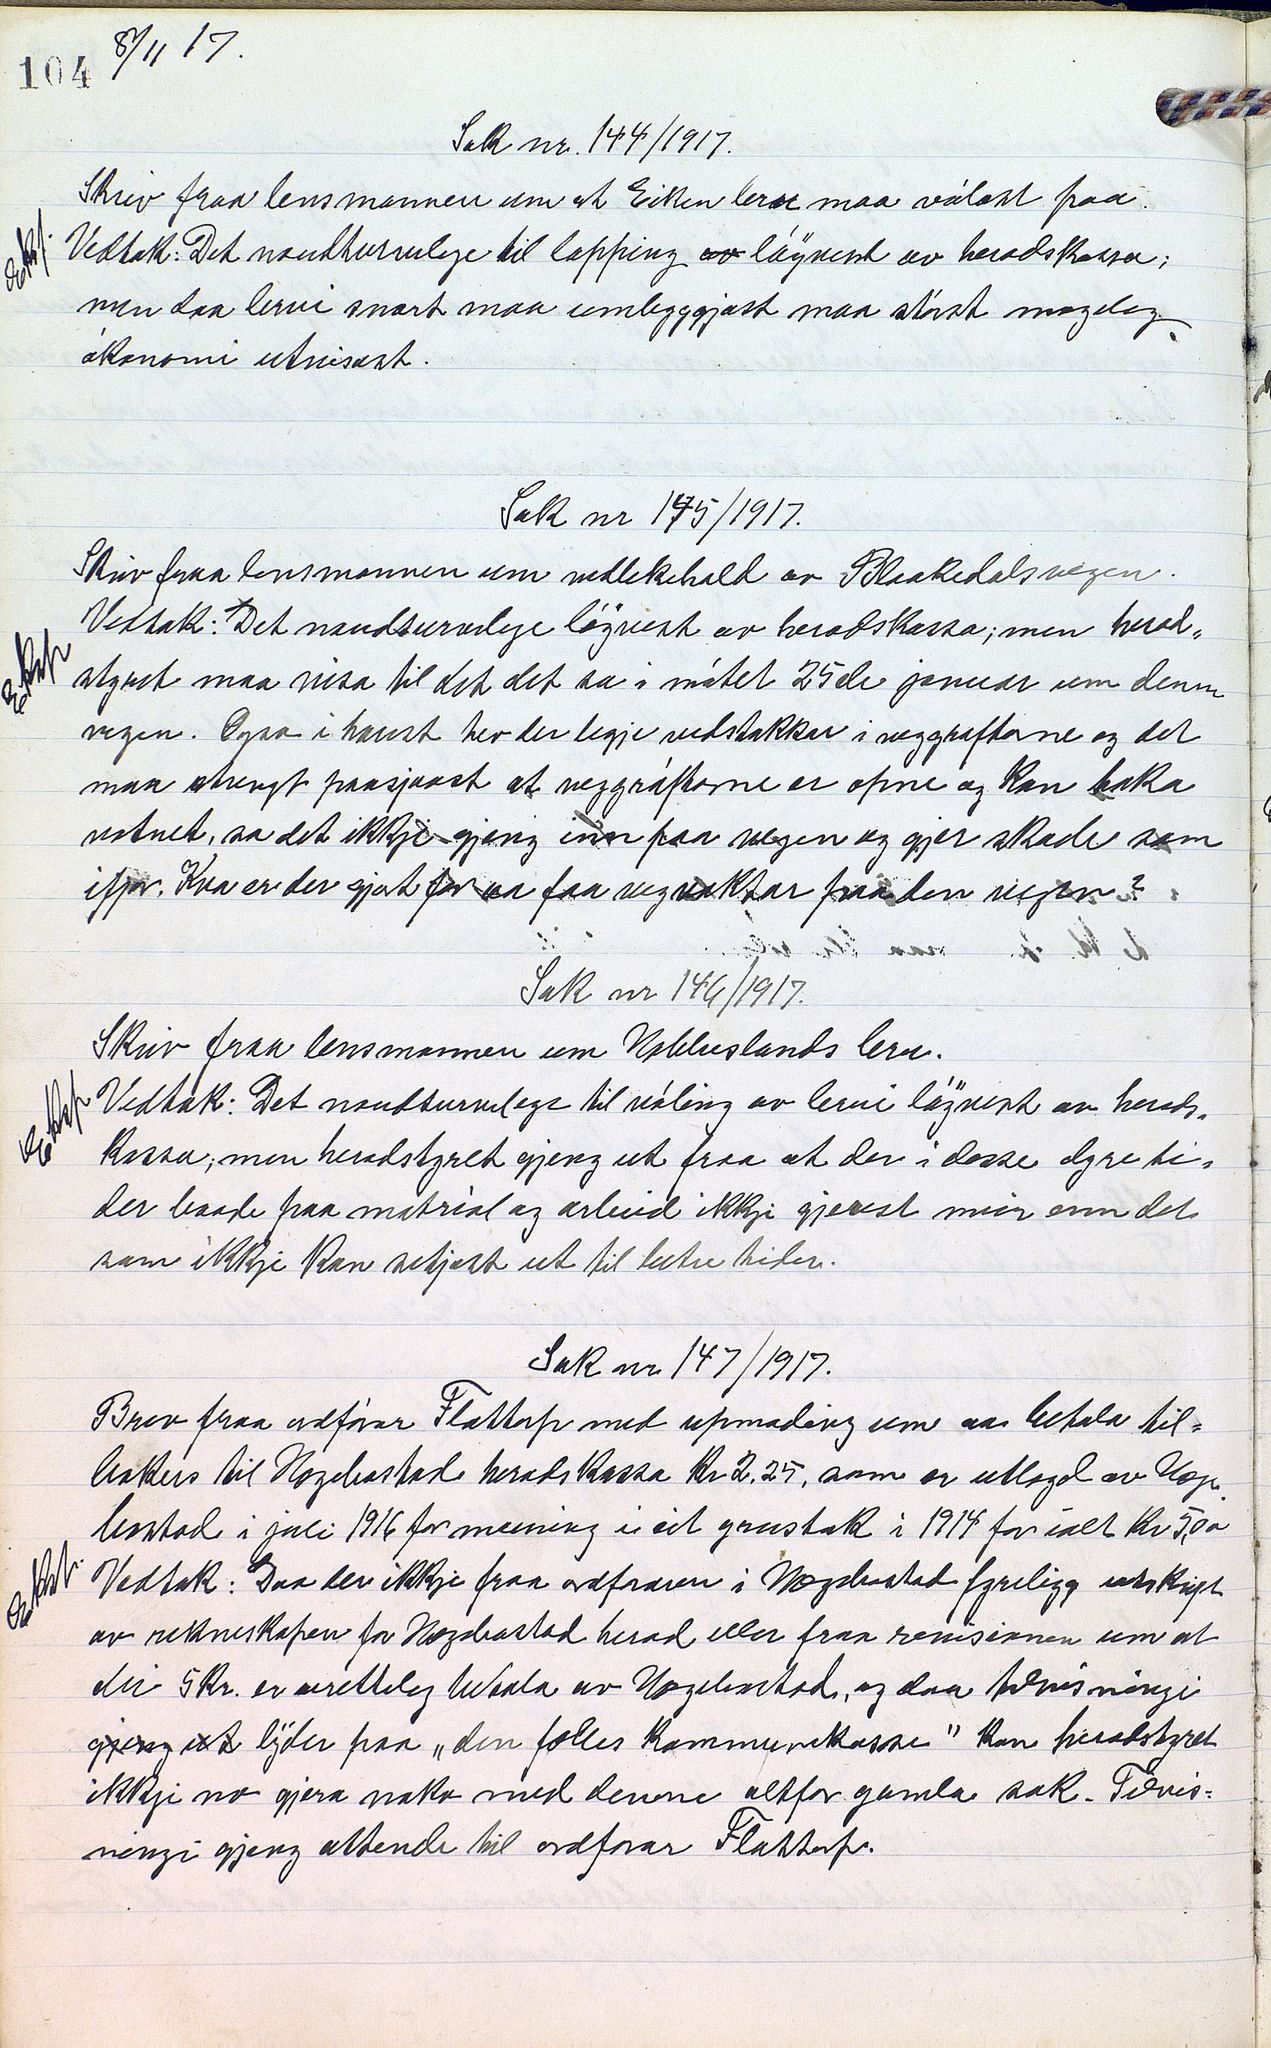 104 8/11 17.
Sak nr. 144/1917.
Skriv fraa lensmannen um at Eiken bru maa vølast paa.
Eksp.
Vedtak: Det naudturvelege til lapping av løyvest av heradskassa;
men daa brui snart maa umleggjast maa størst mogeleg
økonomi utvisast.
Sak nr 145/1917.
Skriv fraa lensmannen um vedlikehald av Blaakedalsvegen.
Vedtak: Det naudturvelege løyvest av heradskassa; men herad-
Eksp
styret maa visa til det det sa i møtet 25de januar um denne
vegen. Ogso i haust hev der legje vedstakkar i veggrøfterne og det
maa strengt paasjaast at veggrøfterne er opne og kan taka
vatnet, so det ikkje gjeng inn paa vegen og gjer skade som
ifjor. Kva er der gjort for aa faa vegvaktar paa den vegen?
Sak nr 146/1917.
Skriv fraa lensmannen um Nakkeslands bru.
Eksp
Vedtak: Det naudturvelege til vøling av brui løyvest av herads-
kassa; men heradstyret gjeng ut fraa at der i desse dyre ti-
der baade paa matrial og arbeid ikkje gjerest meir enn det
som ikkje kan setjast ut til betre tider.
Sak nr 147/1917.
Brev fraa ordførar Flottorp med upmoding um aa betala til-
bakers til Hægebostad heradskassa kr 2.25, som er utlagd av Hæge-
bostad i juli 1916 for meining i eit grustak i 1914 for ialt kr 5,00
Eksp.
Vedtak: Daa der ikkje fraa ordføraren i Hægebostad fyreligg utskrift
av rekneskapen for Hægebostad herad eller fraa revisionen um at
dei 5 kr. er uretteleg betala av Hægebostad, og daa tilvisningi
gjeng ut lyder paa „den felles kommunekasse" kan heradstyret
ikkje no gjera noko med denne altfor gamla sak. Tilvis-
ningi gjeng attende til ordførar Flottorp.